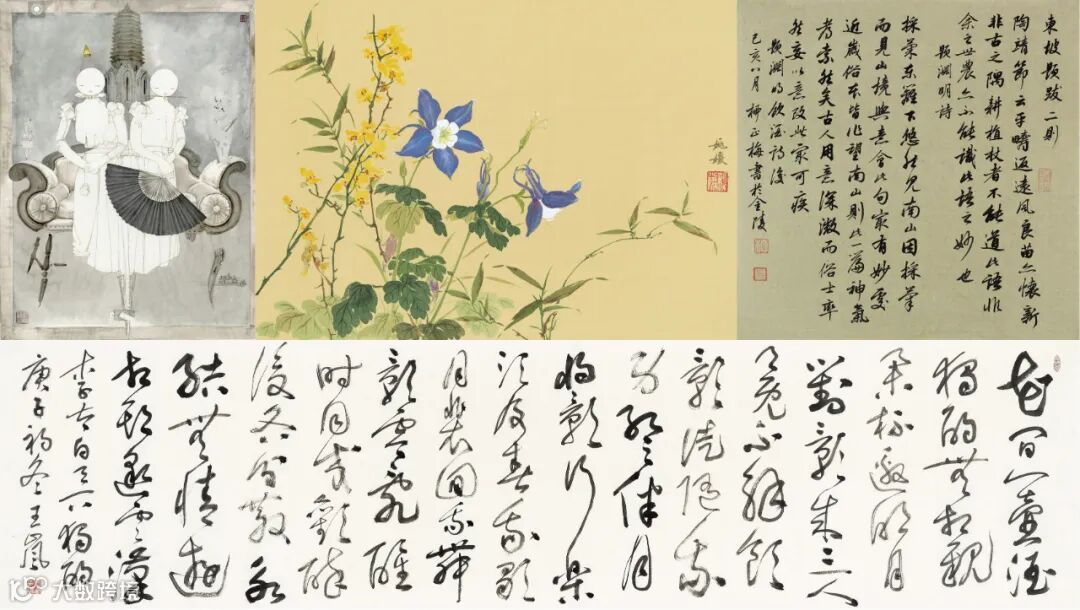 東坡題跋二則
陶靖節云平疇返遠風良苗亦懷新
非古之隅耕植杖者不能道此語非
余之世農亦不能識此語之妙也
題淵明詩
採菊東籬下悠然見南山因採菊
而見山境與意會此句最有妙處
近歲俗本皆作望南山則此一篇神氣
都索然矣古人用意深微而俗士率
然妄以意改此最可疾
題淵明飲酒詩後
己亥八月柳正梅書於金陵
姚媛
花間一壺酒
獨酌無相親
舉杯邀明月
對影成三人
月既不解飲
影徒隨我
身暫伴月
將影行樂
須及春我歌
月裴回我舞
影零亂醒
時同交歡醉
後各分散永
結無情遊
相期邈雲漢
李太白月下獨酌
庚子初冬王嵐
大数跨境